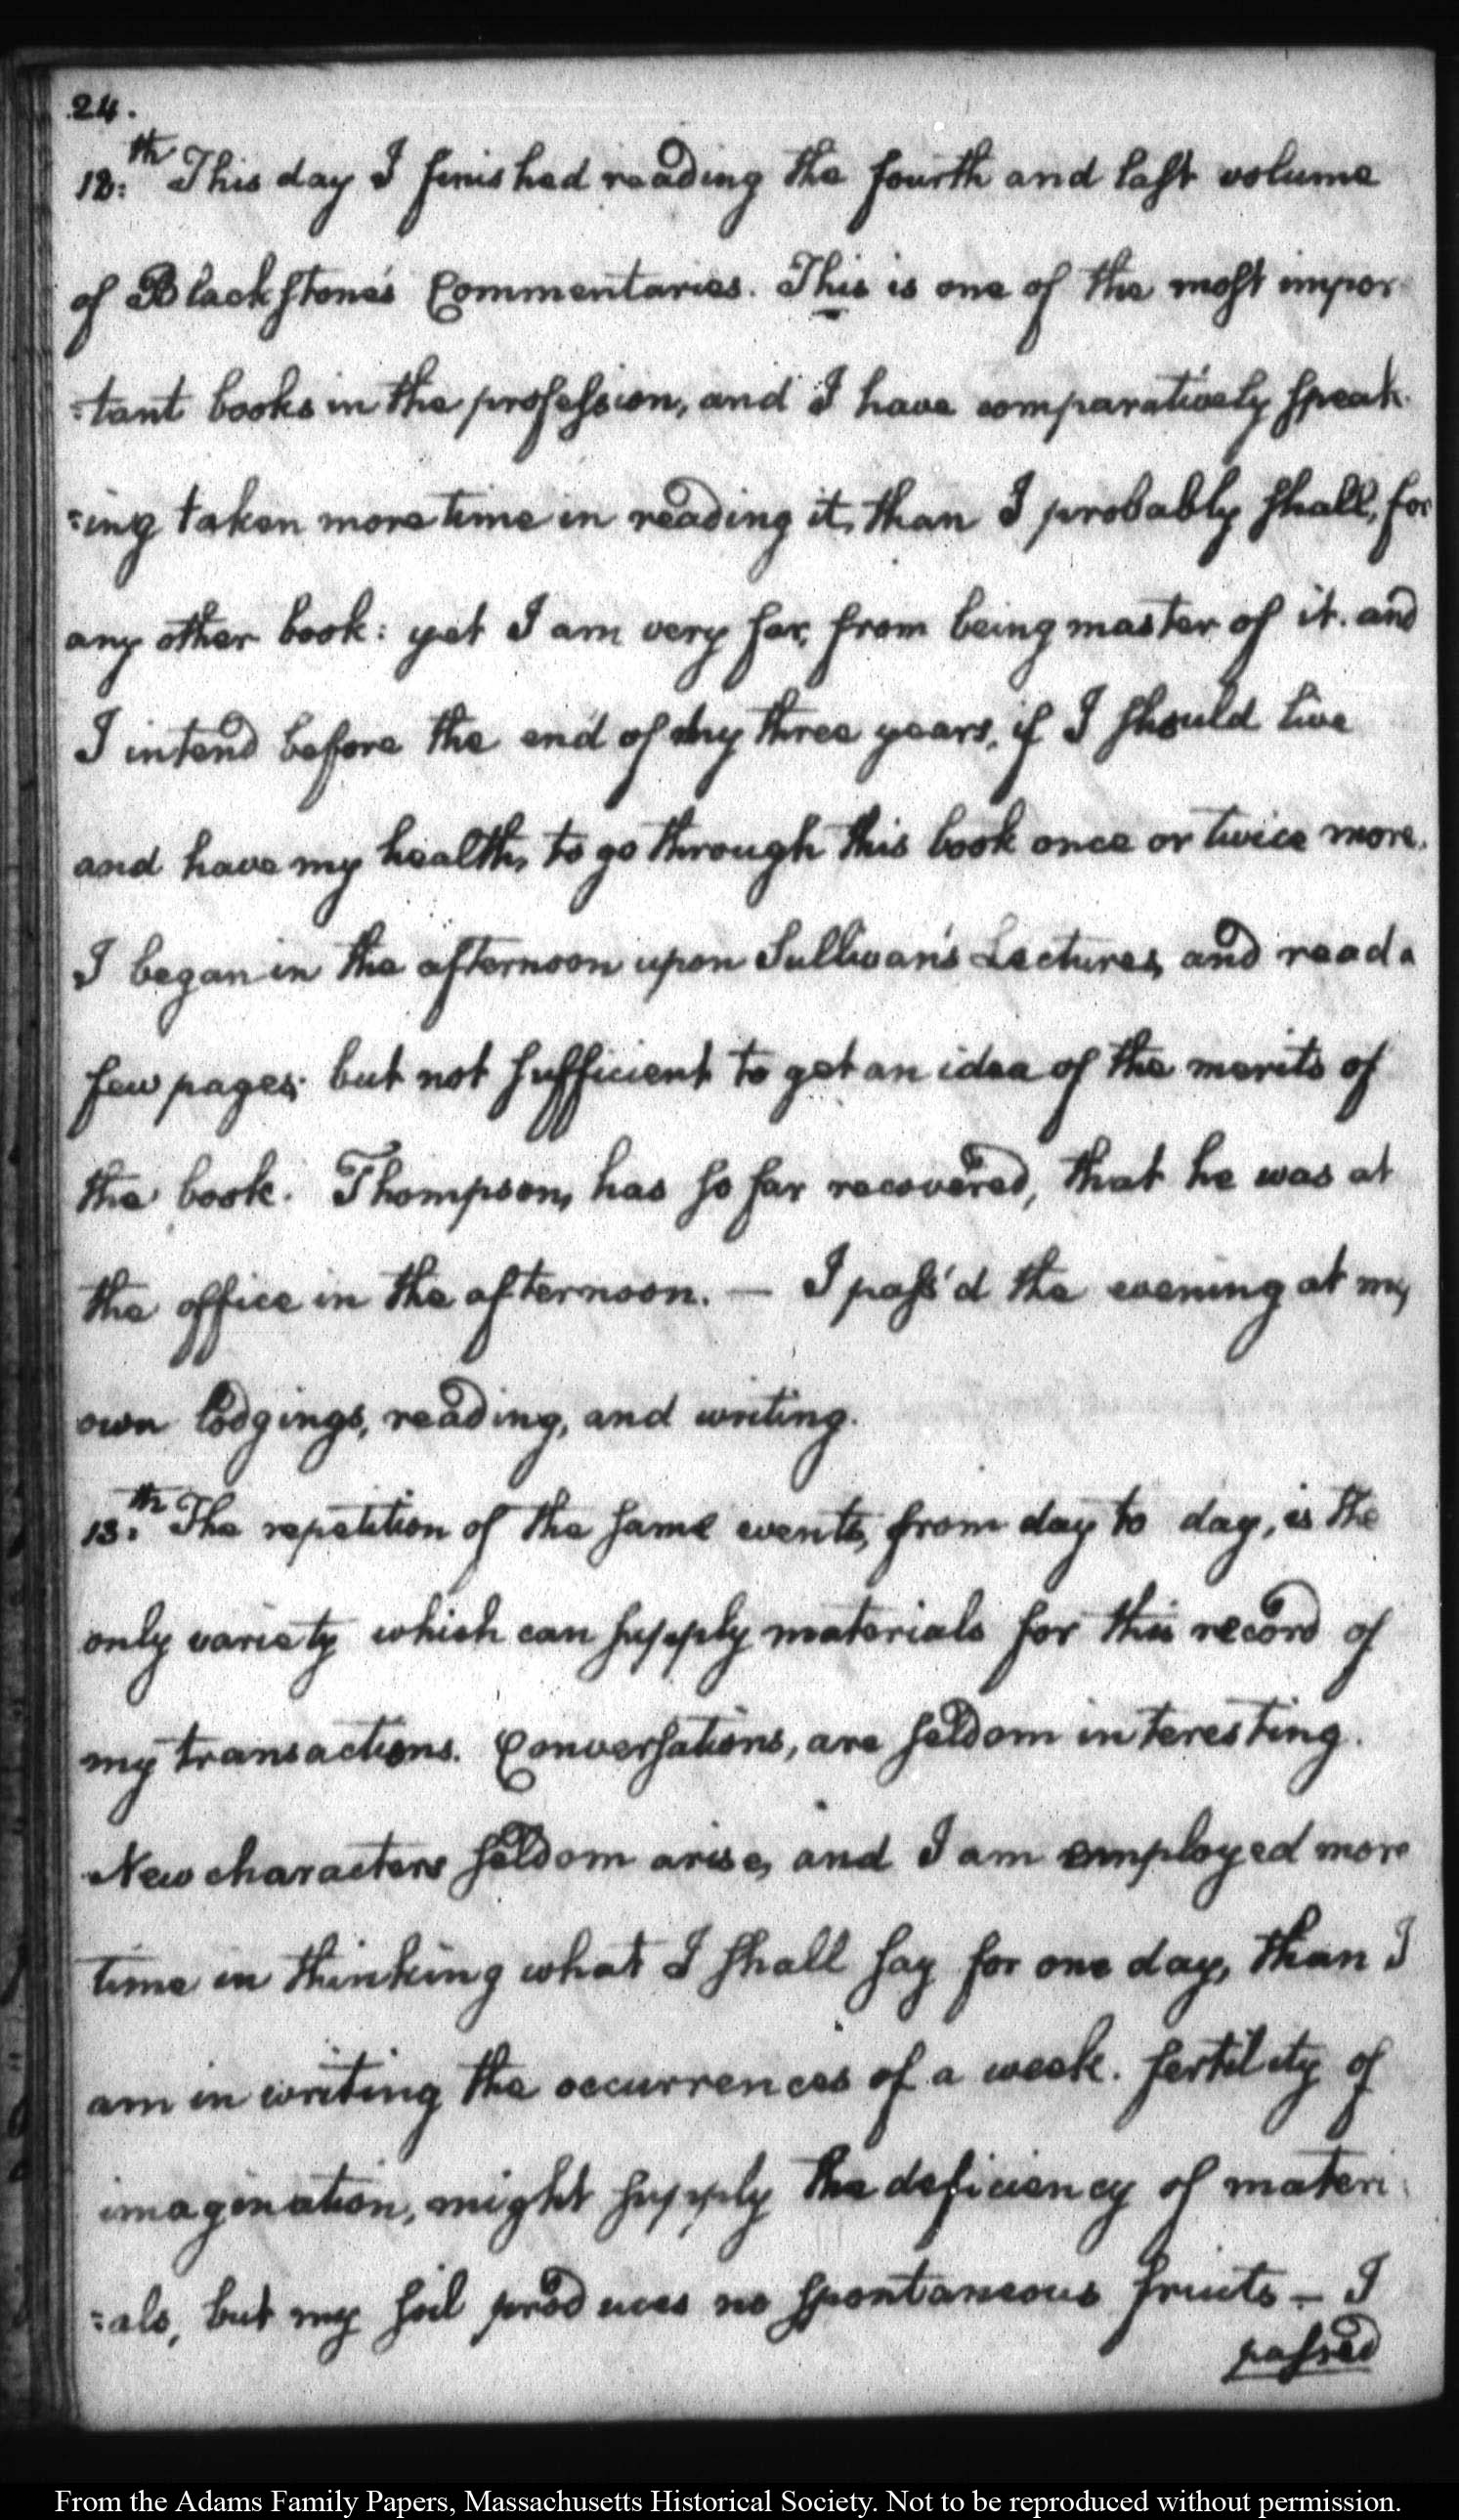 24.
12:th This day I finished reading the fourth and last volume
of Blackstone's Commentaries. This is one of the most impor
=tant books in the profession, and I have comparatively speak
=ing taken more time in reading it, than I probably shall, for
any other book: yet I am very far, from being master of it. and
I intend before the end of my three years, if I should live
and have my health, to go through this book once or twice more.
I began in the afternoon upon Sullivan's Lectures, and read a
few pages; but not sufficient to get an idea of the merits of
the book. Thompson, has so far recovered, that he was at
the office in the afternoon. — I pass'd the evening at my
own lodgings, reading, and writing.
13:th The repetition of the same events, from day to day, is the
only variety which can supply materials for this record of
my transactions. Conversations, are seldom interesting.
New characters seldom arise, and I am employed more
time in thinking what I shall say for one day, than I
am in writing the occurrences of a week. fertility of
imagination, might supply the deficiency of materi
=als, but my soil produces no spontaneous fruits — I
passed
From the Adams Family Papers, Massachusetts Historical Society. Not to be reproduced without permission.